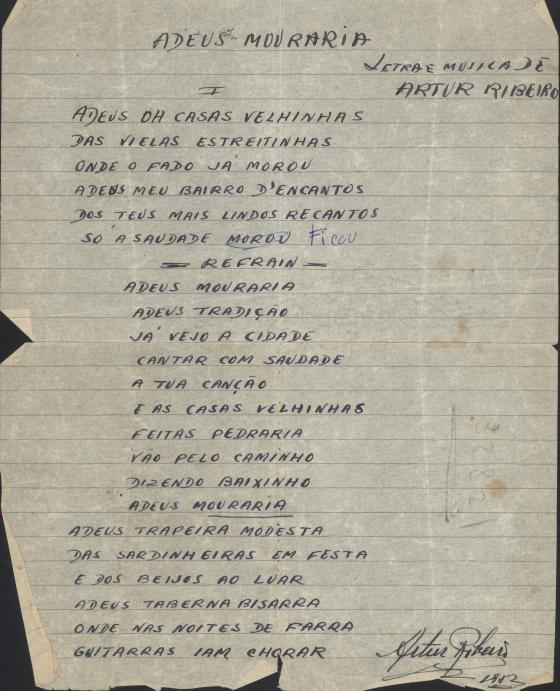 ADEUS MOURARIA
LETRA E MUSICA DE
ARTUR RIBEIRO
I
ADEUS OH CASAS VELHINHAS
DAS VIELAS ESTREITINHAS
ONDE O FADO JÁ MOROU
ADEUS MEU BAIRRO D'ENCANTOS
DOS TEUS MAIS LINDOS RECANTOS
SÓ A SAUDADE MOROU FICOU
= REFRAIN =
ADEUS MOURARIA
ADEUS TRADIÇÃO
JÁ VEJO A CIDADE
CANTAR COM SAUDADE
A TUA CANÇÃO
E AS CASAS VELHINHAS
FEITAS PEDRARIA
VÃO PELO CAMINHO
DIZENDO BAIXINHO
ADEUS MOURARIA
ADEUS TRAPEIRA MODESTA
DAS SARDINHEIRAS EM FESTA
E DOS BEIJOS AO LUAR
ADEUS TABERNA BISARRA
ONDE NAS NOITES DE FARRA
GUITARRAS IAM CHORAR
Artur Ribeiro
1952